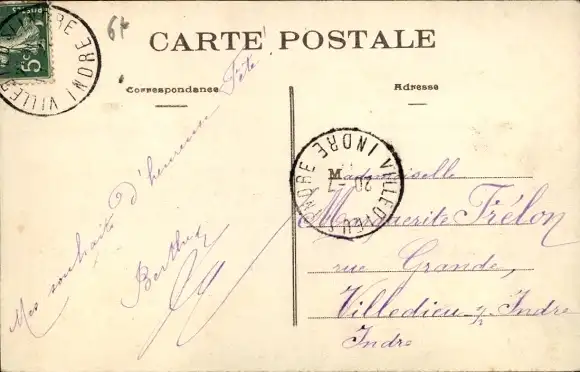 64
5c
CARTE POSTALE
Correspondance
Adresse
Mes souhaits d'heureuse Fête
Berthe
VILLEDIEU S/ INDRE INDRE
20-7
Mademoiselle
Marguerite Frélon
rue Grande,
Villedieu s/ Indre
Indre